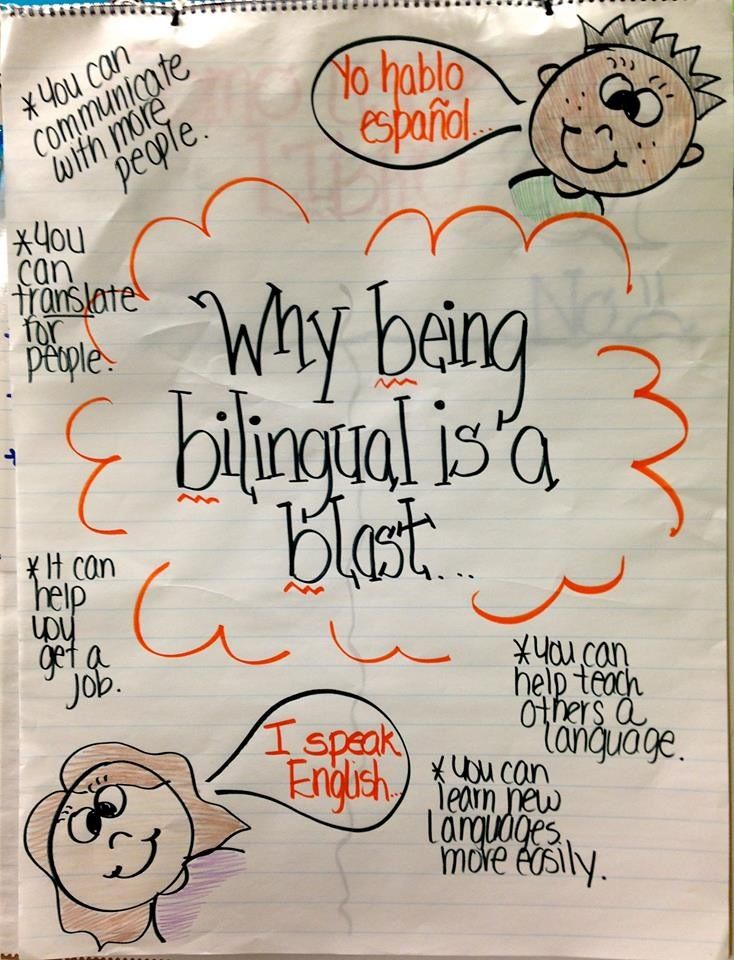 *You can
communicate
with more
people.
Yo hablo
español...
*You
can
translate
for
people.
Why being
bilingual is a
blast...
*It can
help
you
get a
job.
*You can
help teach
others a
language.
I speak
English...
*You can
learn new
languages
more easily.